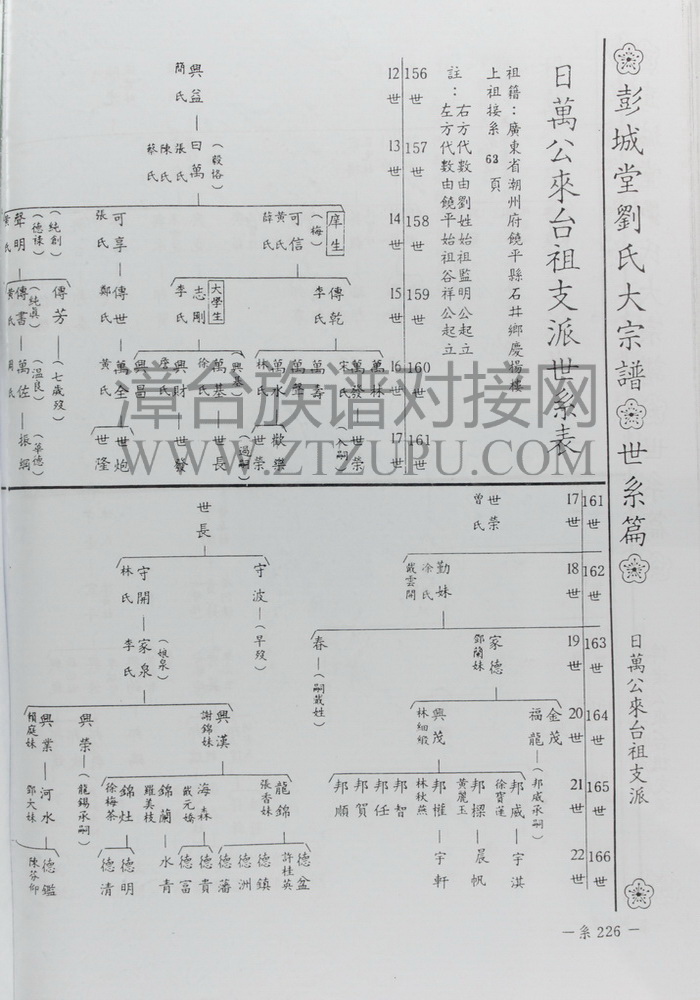 彭城堂劉氏大宗譜 世系篇
日萬公來台祖支派
日萬公來台祖支派世系表
祖籍：廣東省潮州府饒平縣石井鄉慶楊樓
上祖接系63頁
註：右方代數由劉姓始祖監明公起立
左方代數由饒平始祖谷祥公起立
156世 157世 158世 159世 160世 161世
12世 13世 14世 15世 16世 17世
興益 簡氏
日萬 (毅恪) 張氏 陳氏 蔡氏
庠生 (梅) 可信 黃氏 薛氏
可享 張氏
(純創) (德祿) 聲明 黃氏
傳乾 李氏
大學生 志剛 李氏
傳世 鄭氏
傳芳 (七歲歿)
(純眞) 傳書 黃氏
萬林
萬發 宋氏 世榮 (入嗣)
萬壽
萬聲 歡樂
萬水 林氏 世榮
(興基) 萬基 徐氏 世長 (過嗣)
興財 詹氏 世發
興昌
萬全 黃氏 世炮 世隆
(溫良) 萬佐 周氏 振綱 (華德)
161世 162世 163世 164世 165世 166世
17世 18世 19世 20世 21世 22世
世榮 曾氏
勤妹 凃氏 戴雲開
家德 鄧蘭妹
春 (嗣戴姓)
金茂
福龍 (邦威承嗣)
興茂 林細緞
邦威 徐寶蓮 宇淇
邦樑 黃麗玉 晨帆
邦權 林秋燕 宇軒
邦智
邦任
邦賀
邦順
世長
守波 (早歿)
守開 林氏
家泉 (娘泉) 李氏
興漢 謝錦妹
興榮 (龍錫承嗣)
興業 賴庭妹
龍錦 張香妹
海森 戴元嬌
錦蘭 羅美枝 水青
錦灶 徐梅茶
河水 鄧大妹
德盆 許桂英
德鎮
德洲
德藩
德貴
德富
德明
德清
德鑑 陳芬仰
系226
漳台族谱对接网
WWW.ZTZUPU.COM